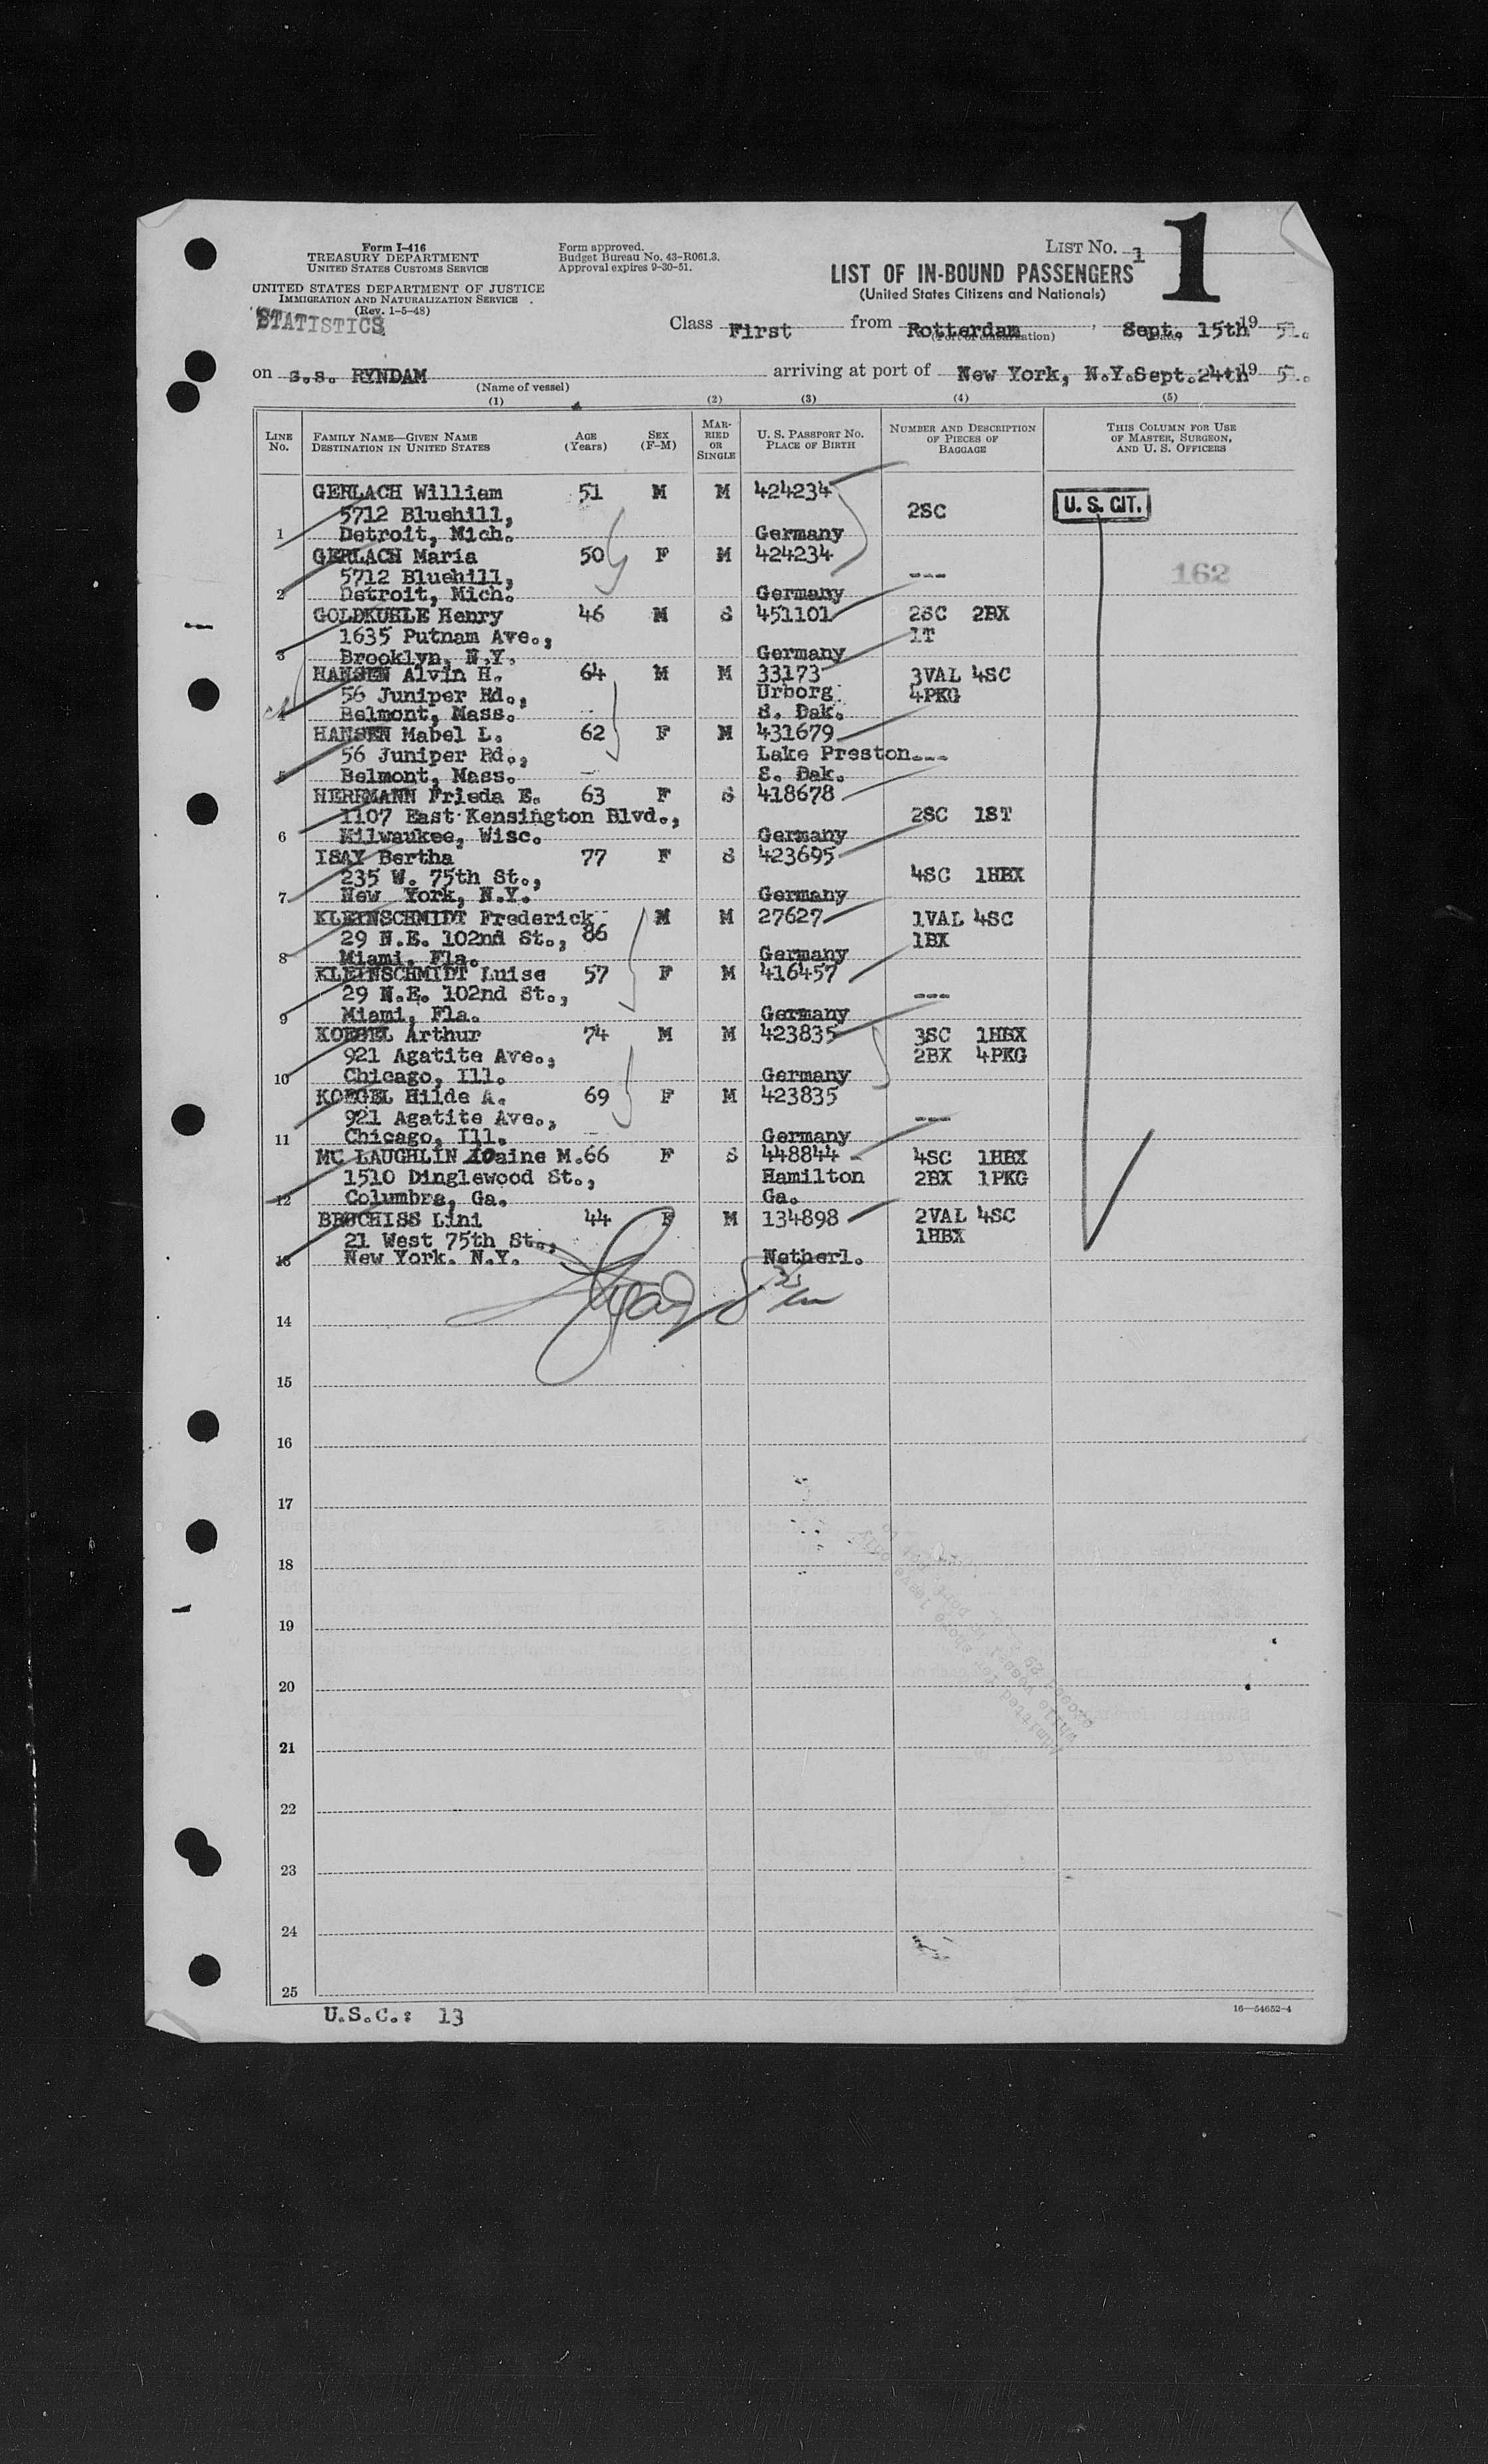 Form I-416
TREASURY DEPARTMENT
UNITED STATES CUSTOMS SERVICE
UNITED STATES DEPARTMENT OF JUSTICE
IMMIGRATION AND NATURALIZATION SERVICE
(Rev. 1-5-48)
STATISTICS
Form approved.
Budget Bureau No. 43-R061.3.
Approval expires 9-30-51.
LIST NO. 1
1
LIST OF IN-BOUND PASSENGERS
(United States Citizens and Nationals)
Class First from Rotterdam, Sept. 15th 19 51.
(Port of embarkation) (Date)
on s.s. RYNDAM arriving at port of New York, N.Y. Sept. 24th 19 51.
(Name of vessel)
(1) (2) (3) (4) (5)
LINE NO. FAMILY NAME—GIVEN NAME DESTINATION IN UNITED STATES AGE (Years) SEX (F-M) MARRIED OR SINGLE U. S. PASSPORT NO. PLACE OF BIRTH NUMBER AND DESCRIPTION OF PIECES OF BAGGAGE THIS COLUMN FOR USE OF MASTER, SURGEON, AND U. S. OFFICERS
GERLACH William 51 M M 424234
5712 Bluehill, 2SC U. S. CIT.
1 Detroit, Mich. Germany
GERLACH Maria 50 F M 424234
5712 Bluehill, --- 162
2 Detroit, Mich. Germany
GOLDKUHLE Henry 46 M S 451101 2SC 2BX
1635 Putnam Ave., 1T
3 Brooklyn, N.Y. Germany
HANSEN Alvin H. 64 M M 33173 3VAL 4SC
56 Juniper Rd., Urborg 4PKG
4 Belmont, Mass. S. Dak.
HANSEN Mabel L. 62 F M 431679
56 Juniper Rd., Lake Preston ---
5 Belmont, Mass. S. Dak.
HERRMANN Frieda E. 63 F S 418678
1107 East Kensington Blvd., 2SC 1ST
6 Milwaukee, Wisc. Germany
ISAY Bertha 77 F S 423695
235 W. 75th St., 4SC 1HBX
7 New York, N.Y. Germany
KLEINSCHMIDT Frederick M M 27627 1VAL 4SC
29 N.E. 102nd St., 86 1BX
8 Miami, Fla. Germany
KLEINSCHMIDT Luise 57 F M 416457
29 N.E. 102nd St., ---
9 Miami, Fla. Germany
KOEGEL Arthur 74 M M 423835 3SC 1HBX
921 Agatite Ave., 2BX 4PKG
10 Chicago, Ill. Germany
KOEGEL Hilde A. 69 F M 423835
921 Agatite Ave., ---
11 Chicago, Ill. Germany
MC LAUGHLIN M. 66 F S 448844 4SC 1HBX
1510 Dinglewood St., Hamilton 2BX 1PKG
12 Columbra, Ga. Ga.
Lini 44 F M 134898 2VAL 4SC
21 West 75th St., 1HBX
13 New York. N.Y. Netherl.
14
15
16
17
18
19
20
21
22
23
24
25
U.S.C.: 13
16—54652-4